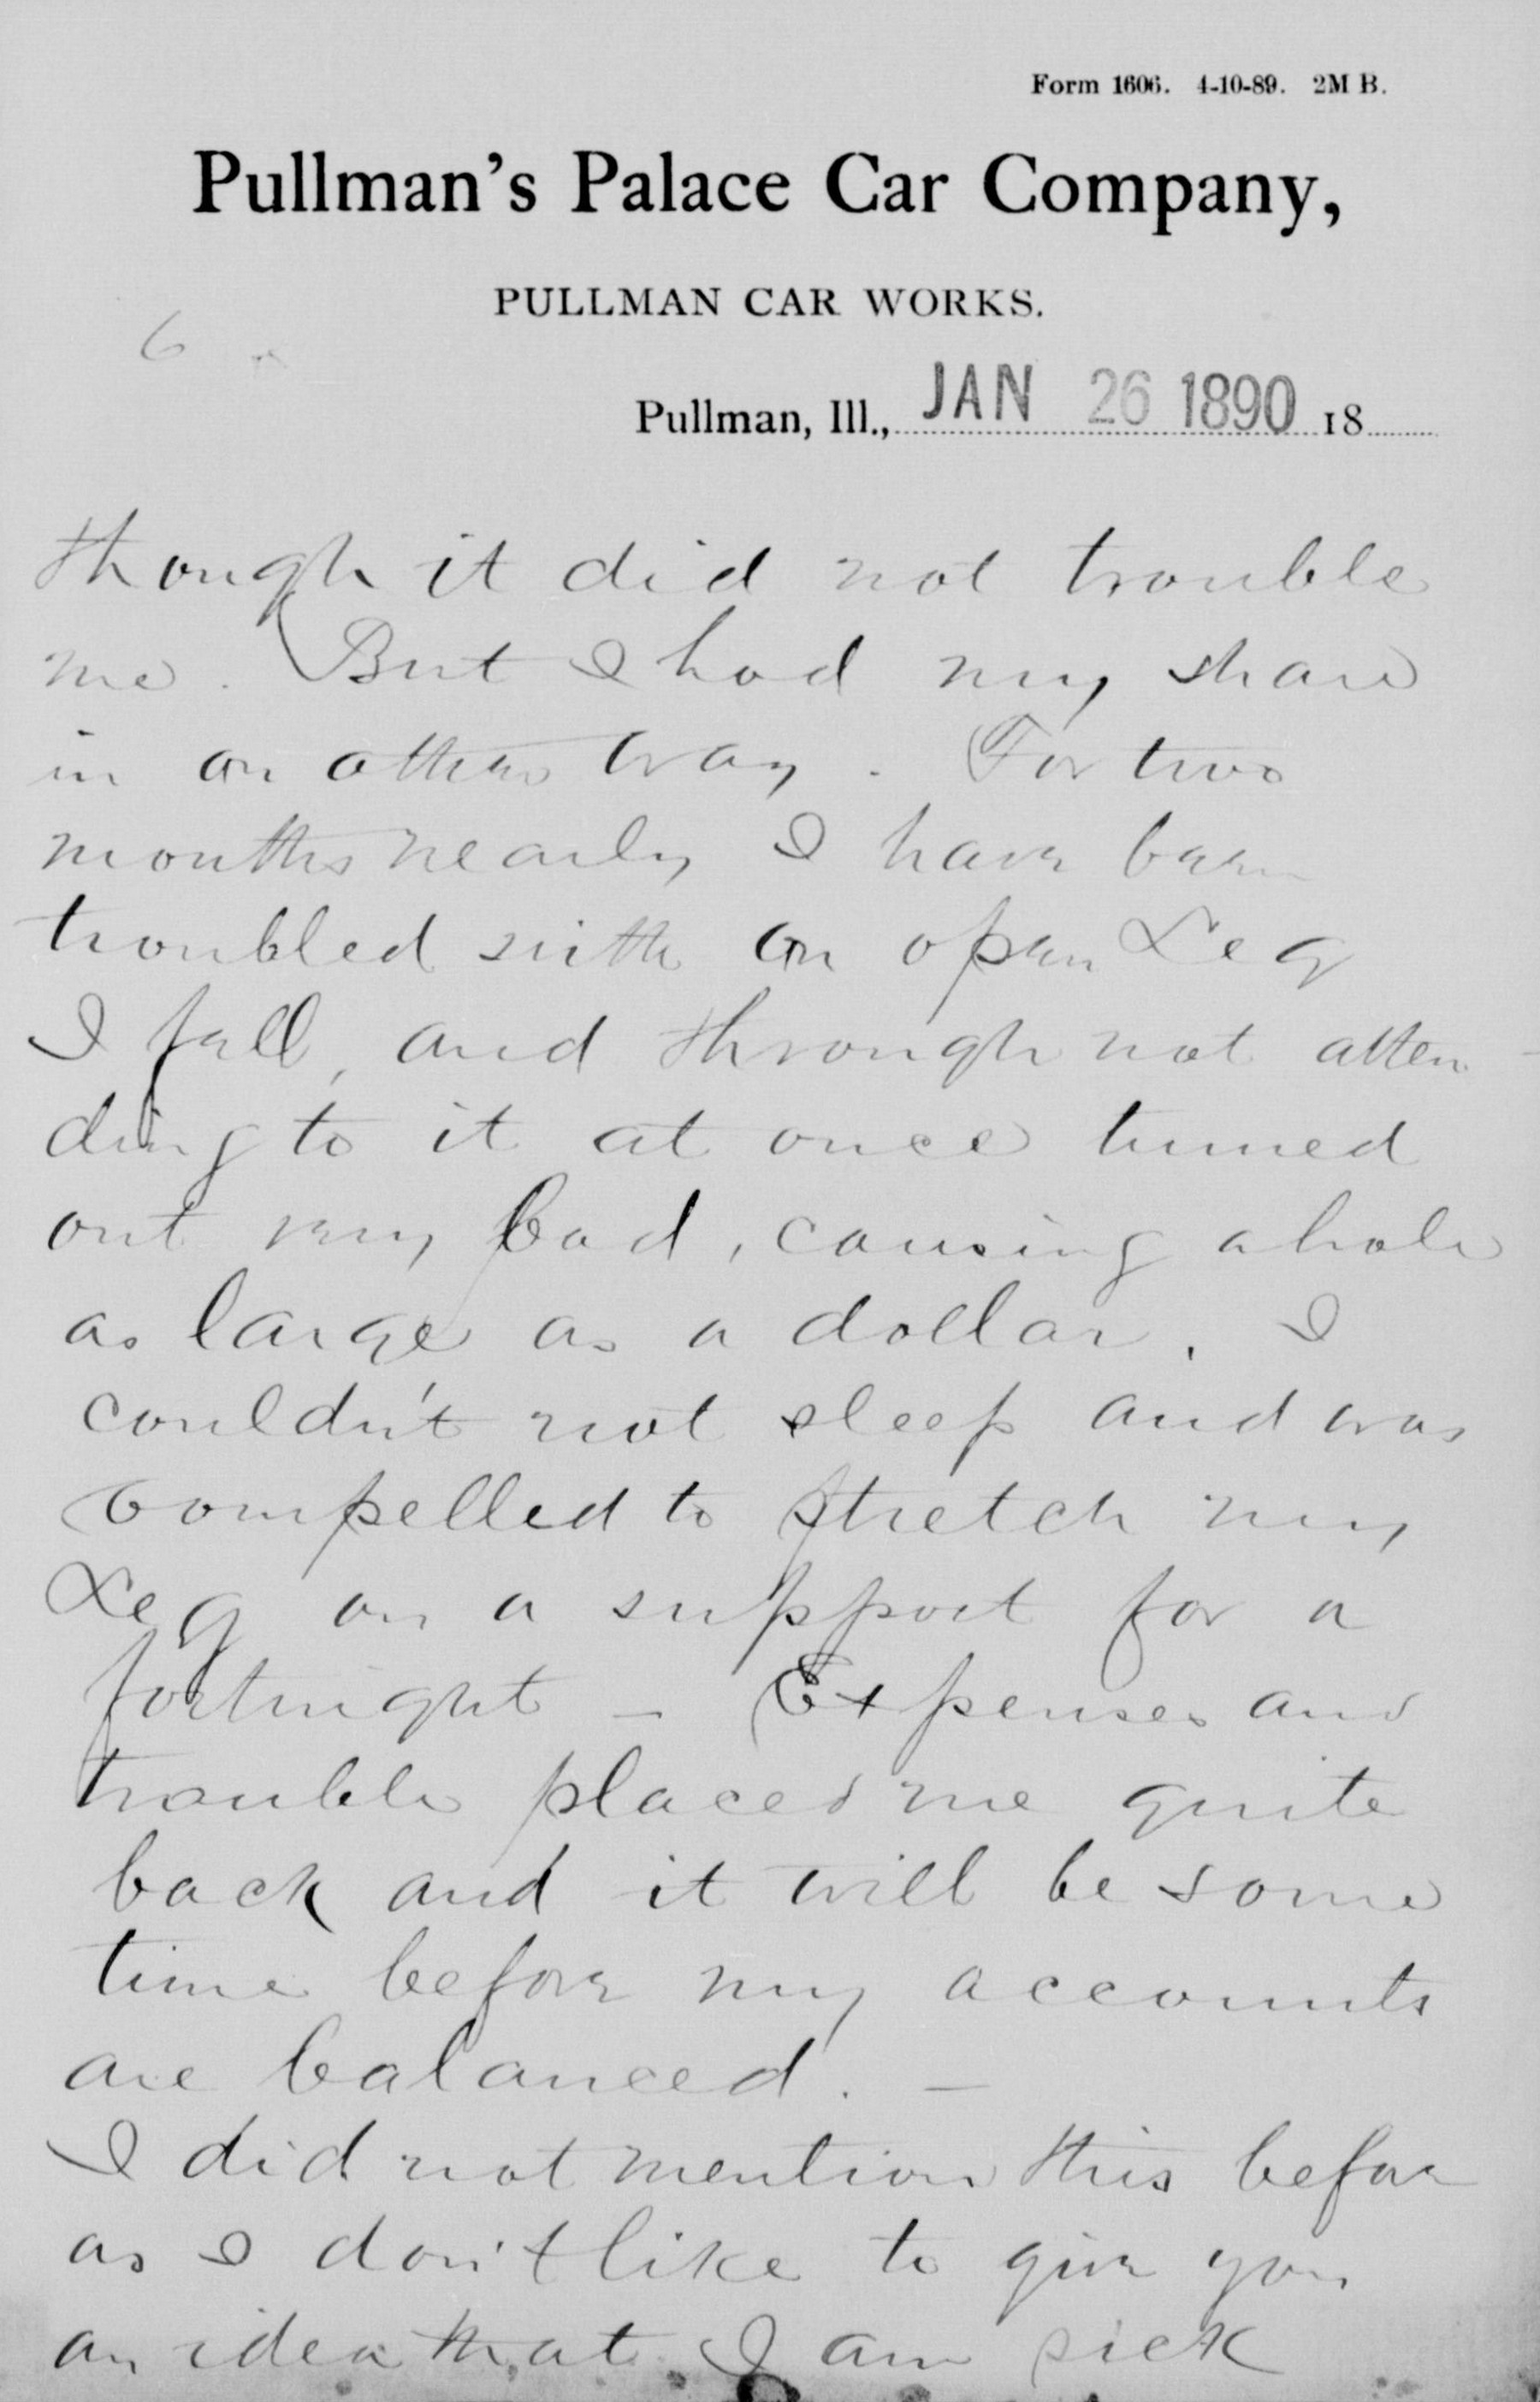 Form 1606. 4-10-89. 2M B.
Pullman's Palace Car Company,
PULLMAN CAR WORKS.
6
Pullman, Ill., JAN 26 1890 18
though it did not trouble
me. But I had my share
in an other way. For two
months nearly I have been
troubled with an open Leg
I fell, and through not atten
ding to it at once turned
out very bad, causing a hole
as large as a dollar. I
couldn't not sleep and was
compelled to stretch my
Leg on a support for a
fortnight – Expenses and
trouble placed me quite
back and it will be some
time before my accounts
are balanced. –
I did not mention this before
as I don't like to give you
an idea that I am sick